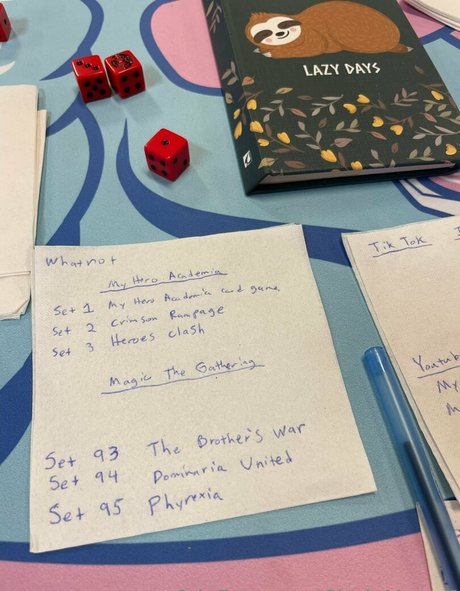 LAZY DAYS
Whatnot
My Hero Academia
Set 1 My Hero Academia card game
Set 2 Crimson Rampage
Set 3 Heroes clash
Magic The Gathering
Set 93 The Brother's War
Set 94 Dominaria United
Set 95 Phyrexia
Tik Tok
Youtub
My
M